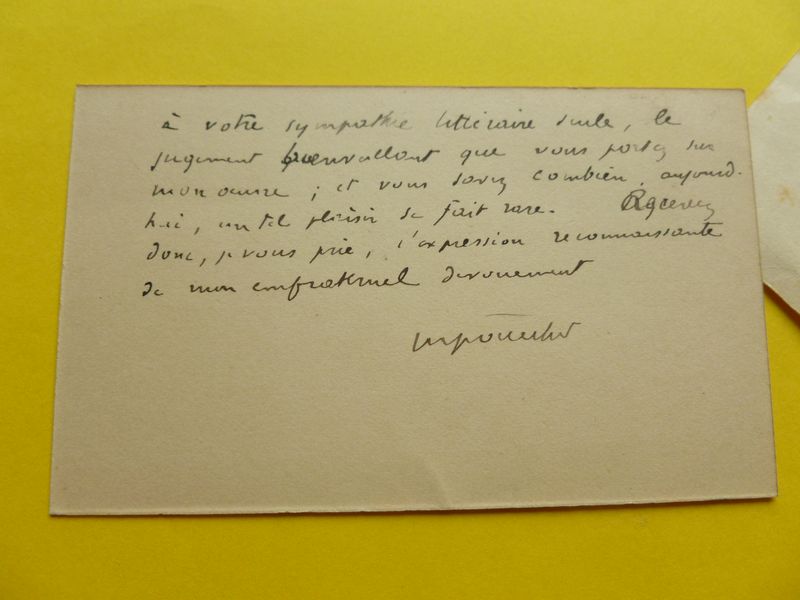 à votre sympathie littéraire seule, le
jugement bienveillant que vous portez sur
mon œuvre ; et vous savez combien, aujourd-
hui, un tel plaisir se fait rare. Recevez
donc, je vous prie, l'expression reconnaissante
de mon confraternel dévouement